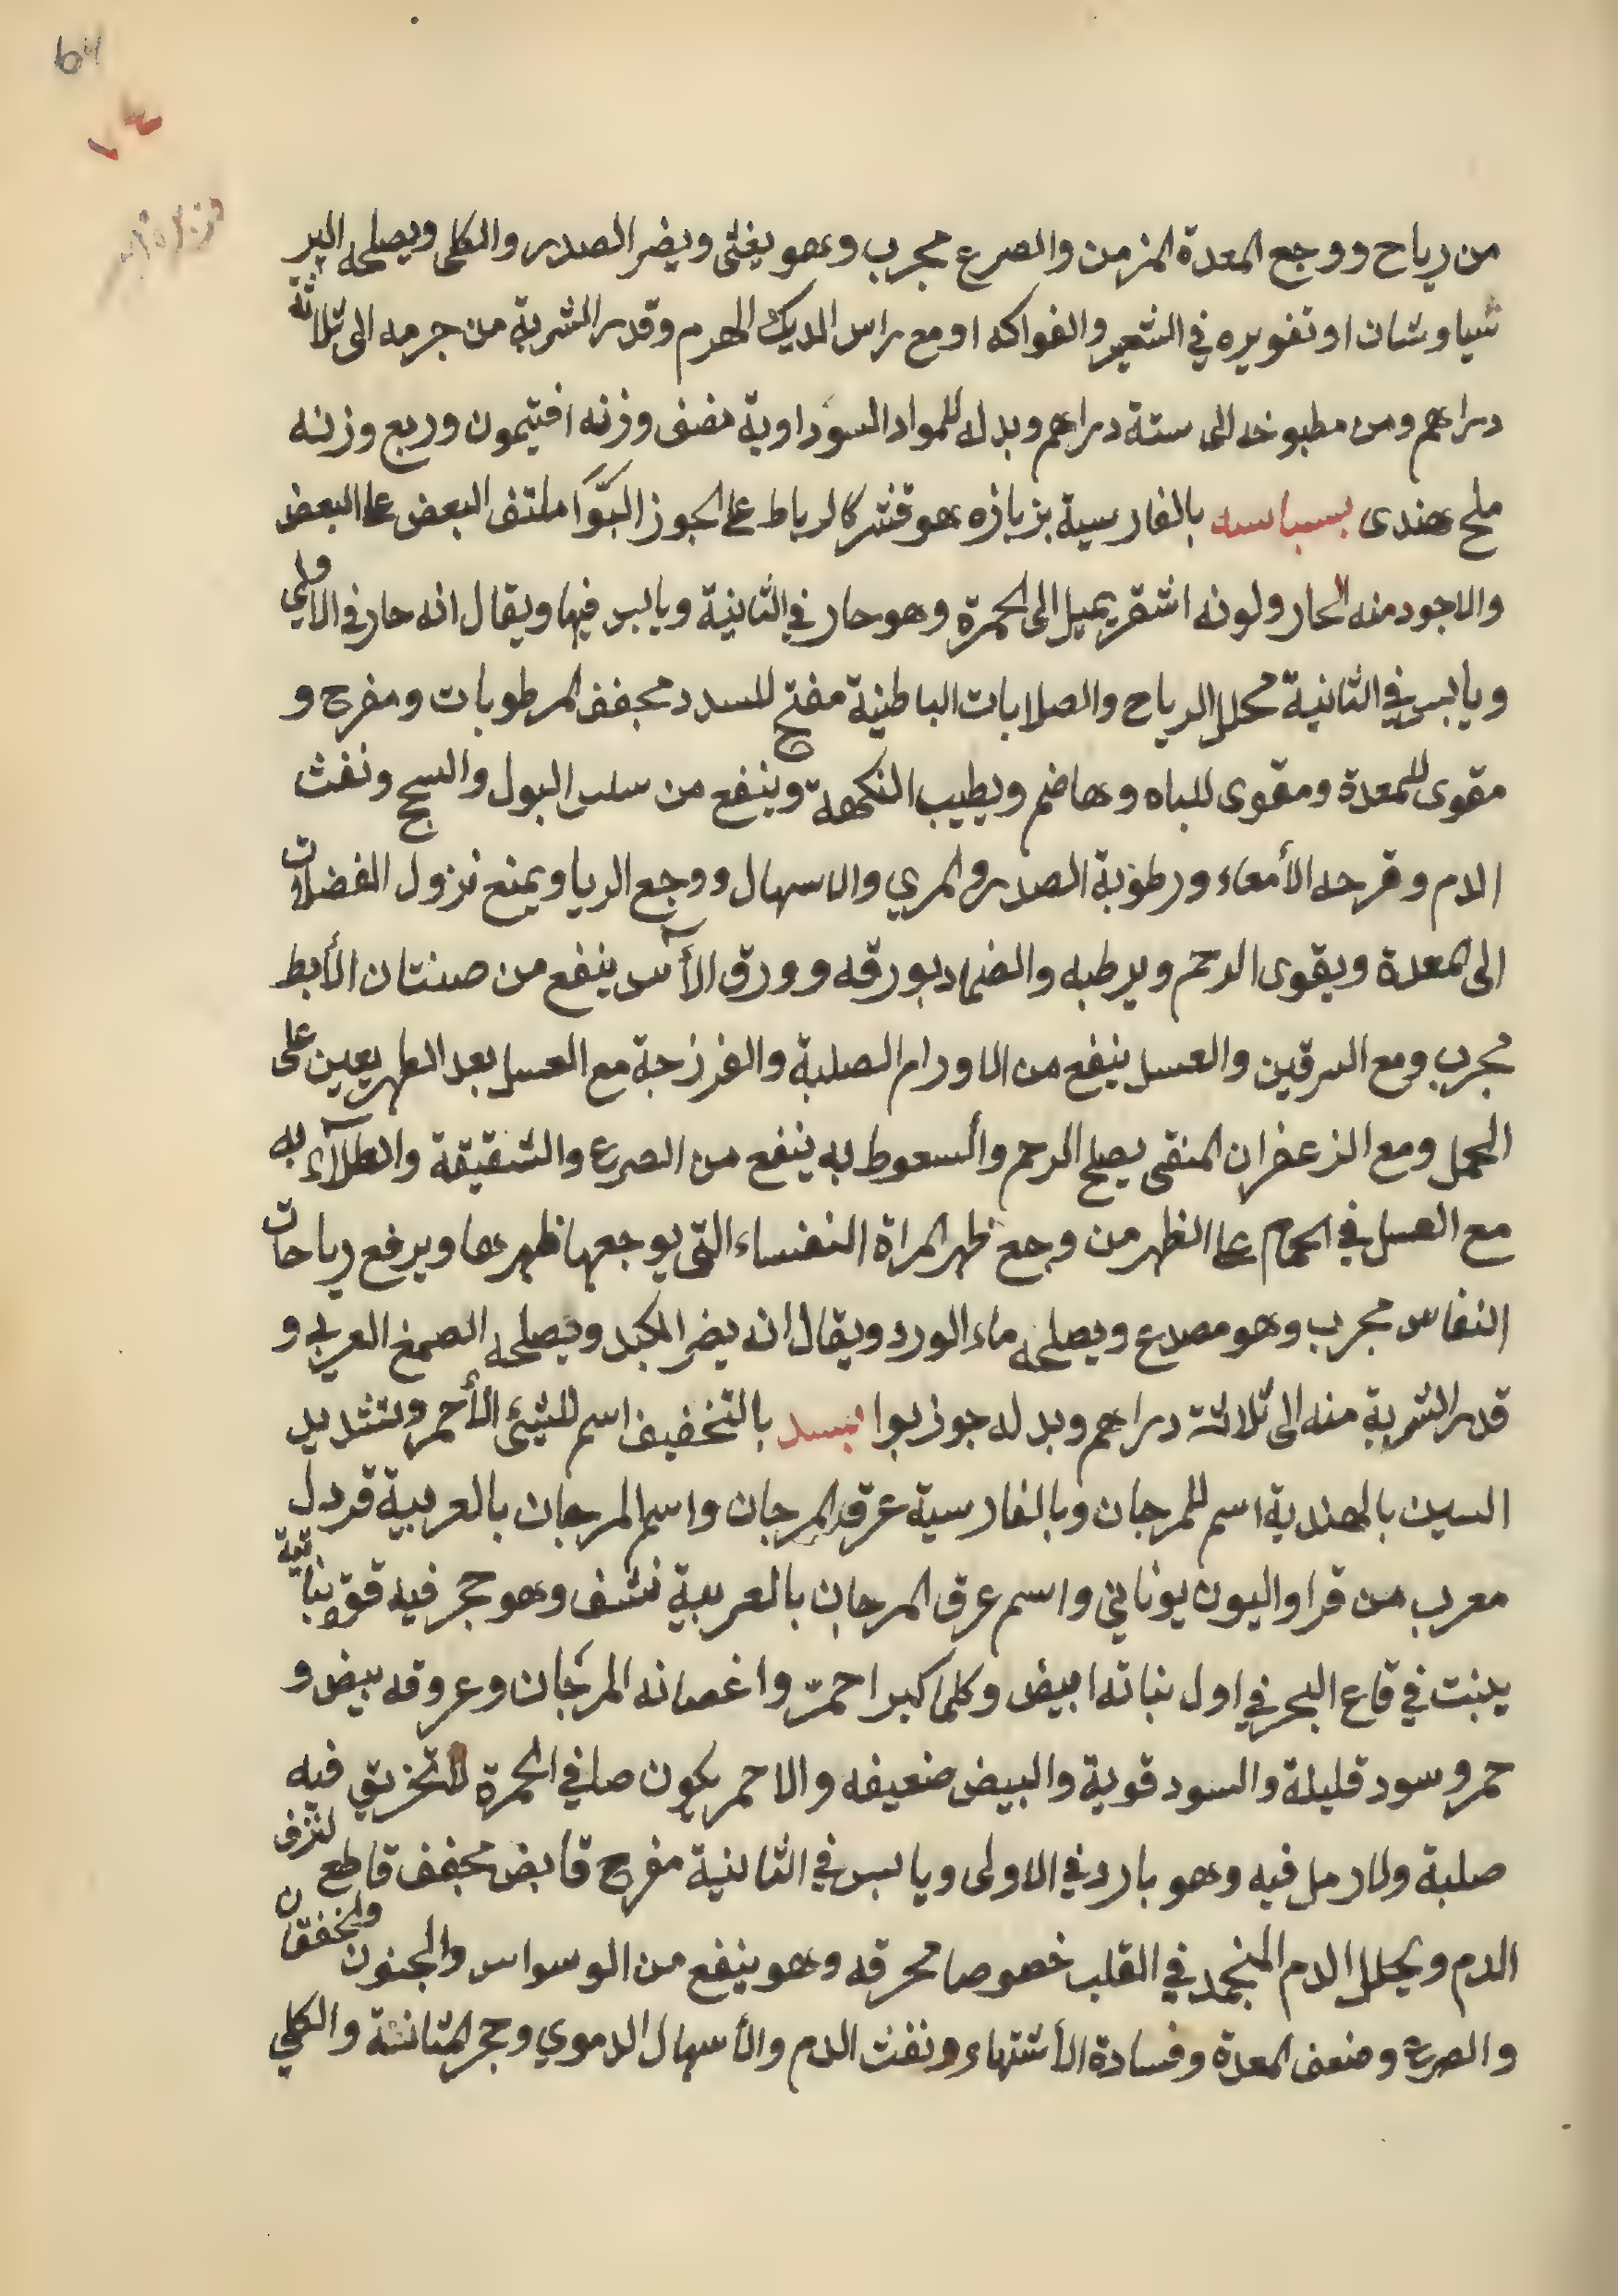 64
من رياح ووجع المعدة المزمن والصرع مجرب وهو يغثى ويضر الصدر والكلى ويصلحه البر
شياوشان او تفويره في الشعير والفواكه او مع راس الديك الهرم وقدر الشربة من جرمه الى ثلاثة
دراهم ومن مطبوخه الى ستة دراهم وبدله للمواد السوداوية نصف وزنه افتيمون وربع وزنه
ملح هندى بسباسه بالفارسية بزبازه هو قشر كالرباط على الجوز البوّا ملتف البعض على البعض
والاجود منه الحار ولونه اشقر يميل الى الحمرة وهو حار في الثانية ويابس فيها ويقال انه حار في الاولى
ويابس في الثانية محلل الرياح والصلابات الباطنية مفتح للسدد مجفف الرطوبات ومفرح و
مقوى للمعدة ومقوى للباه وهاضم ويطيب النكهة وينفع من سلس البول والسحج ونفث
الدم وقرحه الأمعاء ورطوبة الصدر والمري والاسهال ووجع الريا ويمنع نزول الفضلات
الى المعدة ويقوى الرحم ويرطبه والضماد بورقه وورق الآس ينفع من صنتان الأبط
مجرب ومع السرقين والعسل ينفع من الاورام الصلبة والفرزجة مع العسل بعد الطهر يعين على
الحمل ومع الزعفران المنقى يصلح الرحم وألسعوط به ينفع من الصرع والشقيقة والطلآء به
مع العسل في الحمام على الظهر من وجع ظهر المراة النفساء التي يوجعها ظهرها ويرفع رياحات
النفاس مجرب وهو مصدع ويصلحه ماء الورد ويقال انه يضر الكبد ويصلحه الصمغ العربي و
قدر الشربة منه الى ثلاثة دراهم وبدله جوز بوا بسد بالتخفيف اسم للشيئ الأحمر وبتشديد
السين بالهندية اسم للمرجان وبالفارسية عرق المرجان واسم المرجان بالعربية قردل
معرب من قراواليون يوناني واسم عرق المرجان بالعربية نشف وهو حجر فيه قوة نباتية
ينبت في قاع البحر في اول نباته ابيض وكلما كبر احمرّ واغصانه المرجان وعروقه بيض و
حمر وسود قليلة والسود قوية والبيض ضعيفه والاحمر يكون صافي الحمرة لاتخزيق فيه
صلبة ولا رمل فيه وهو بارد في الاولى ويابس في الثانية مفرح قابض مجفف قاطع لنزف
الدم ويحلل الدم المنجمد في القلب خصوصا محرقه وهو ينفع من الوسواس والجنون والخفقان
والصرع وضعف المعدة وفسادة الأشتهاء ونفث الدم والأسهال الدموي وحجر المثانة والكلي